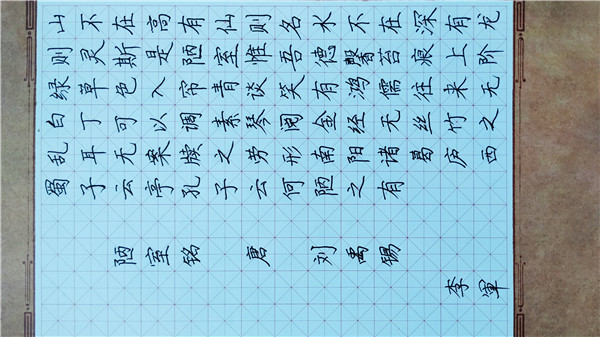 山不在高有仙则名水不在深有龙
则灵斯是陋室惟吾德馨苔痕上阶
绿草色入帘青谈笑有鸿儒往来无
白丁可以调素琴阅金经无丝竹之
乱耳无案牍之劳形南阳诸葛庐西
蜀子云亭孔子云何陋之有
陋室铭 唐 刘禹锡
李軍